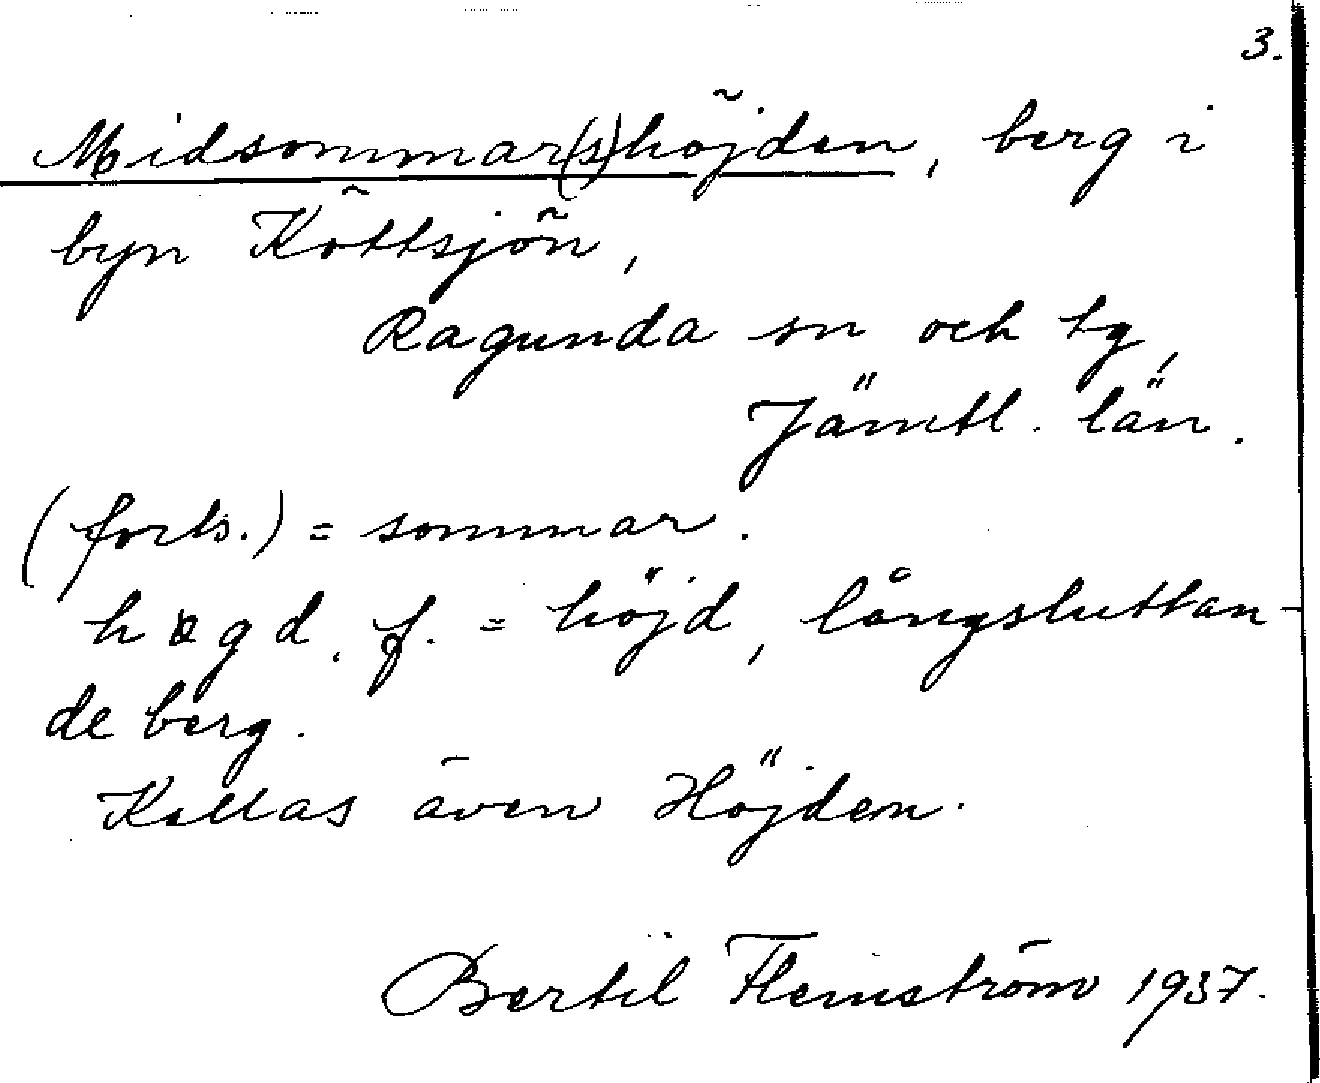 3.
Midsommar(s)höjden, berg i
byn Köttsjön,
Ragunda sn och tg,
Jämtl. län.
(forts.) = sommar.
høgd, f. = höjd, långsluttan-
de berg.
Kallas även Höjden.
Bertil Flemström 1937.